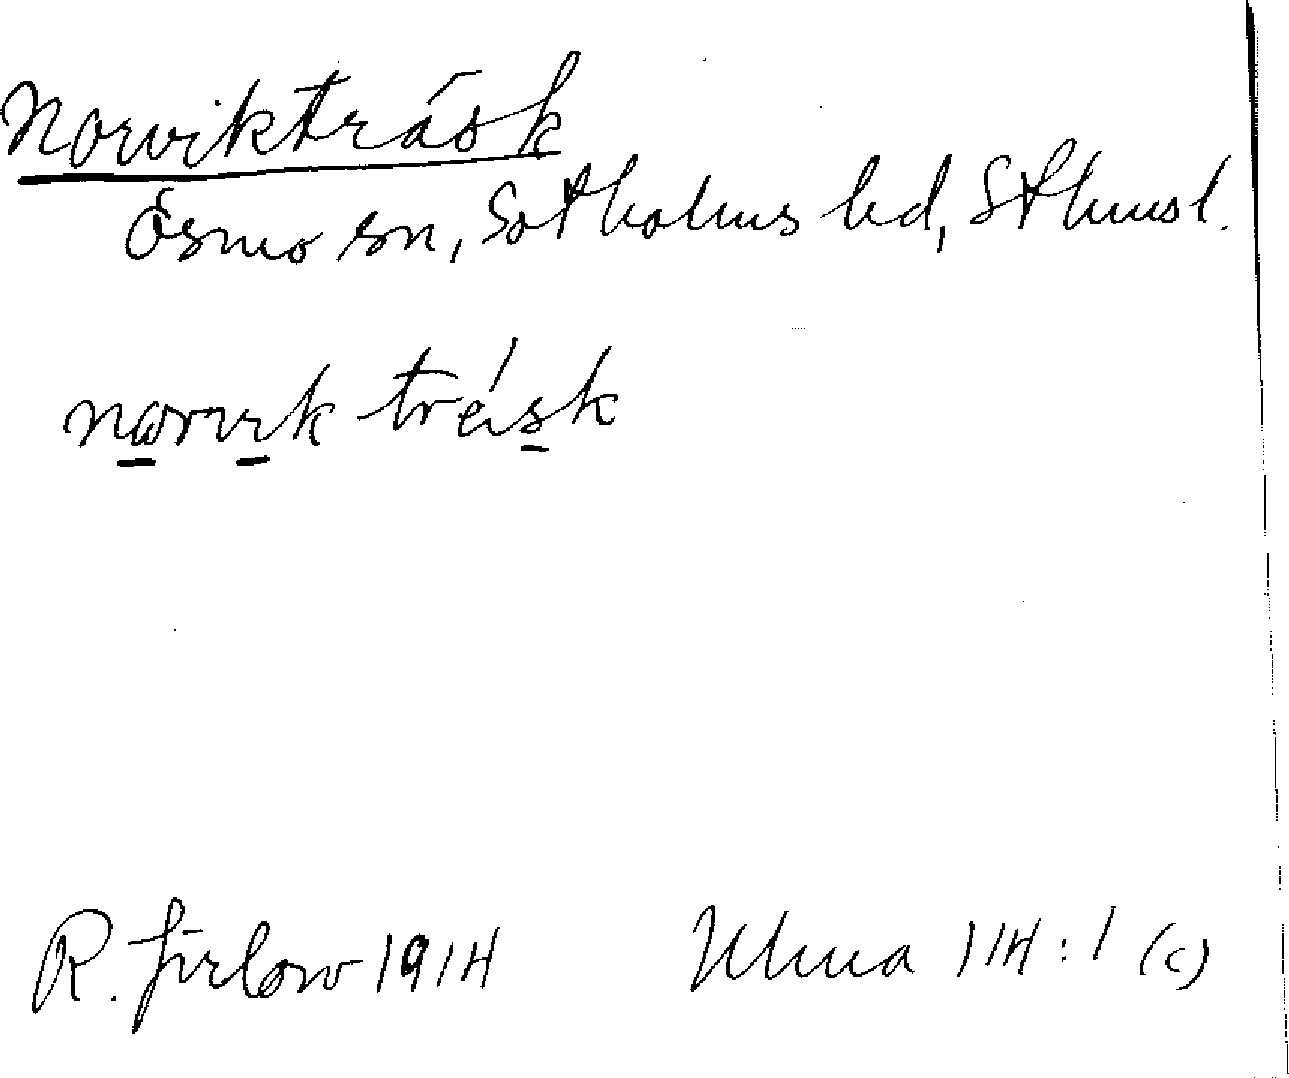 Norvikträsk
Ösmo sn, Sotholms hd, Sthmsl.
norvik träsk
R. Jirlow 1914 Ulma 114:1 (c)